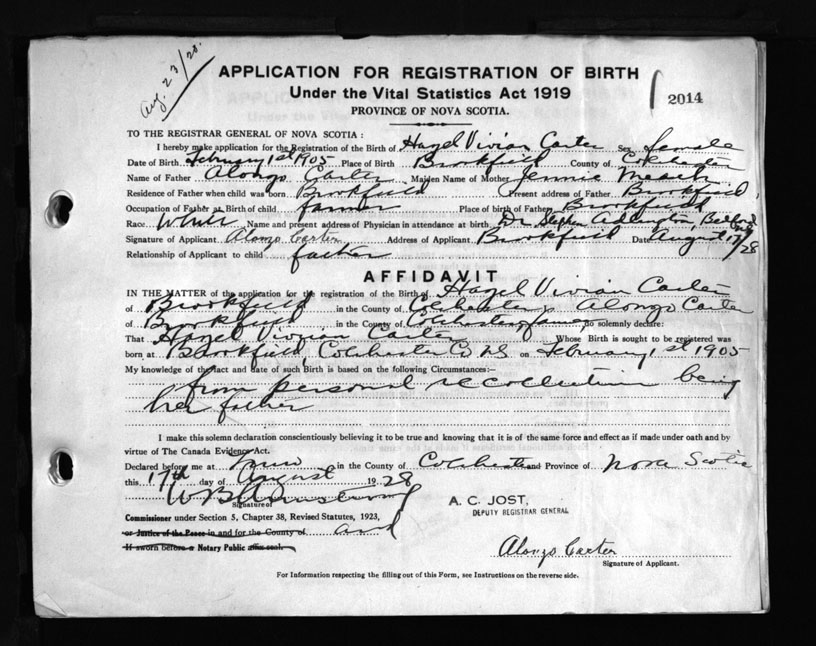 Aug. 23/28.
APPLICATION FOR REGISTRATION OF BIRTH
Under the Vital Statistics Act 1919
PROVINCE OF NOVA SCOTIA.
2014
TO THE REGISTRAR GENERAL OF NOVA SCOTIA :
I hereby make application for the Registration of the Birth of Hazel Vivian Carter Sex female
Date of Birth February 1st 1905 Place of Birth Brookfield County of Colchester
Name of Father Alonzo Carter Maiden Name of Mother Jennie
Residence of Father when child was born Brookfield Present address of Father Brookfield
Occupation of Father at Birth of child farmer Place of birth of Father Brookfield
Race White Name and present address of Physician in attendance at birth Dr. Stephen Addington,
Signature of Applicant Alonzo Carter Address of Applicant Brookfield Date August 17/28
Relationship of Applicant to child father
AFFIDAVIT
IN THE MATTER of the application for the registration of the Birth of Hazel Vivian Carter
of Brookfield in the County of Colchester Alonzo Carter
of Brookfield in the County of Colchester farmer do solemnly declare:
That Hazel Vivian Carter Whose Birth is sought to be registered was
born at Brookfield, Colchester Co NS on February 1st 1905
My knowledge of the fact and date of such Birth is based on the following Circumstances:—
from personal recollection being
her father
I make this solemn declaration conscientiously believing it to be true and knowing that it is of the same force and effect as if made under oath and by
virtue of The Canada Evidence Act.
Declared before me at Truro in the County of Colchester and Province of Nova Scotia
this 17th day of August 1928
W B Armstrong
Signature of
A. C. JOST,
DEPUTY REGISTRAR GENERAL
Commissioner under Section 5, Chapter 38, Revised Statutes, 1923,
or Justice of the Peace in and for the County of and
If sworn before a Notary Public affix seal.
Alonzo Carter
Signature of Applicant.
For Information respecting the filling out of this Form, see Instructions on the reverse side.